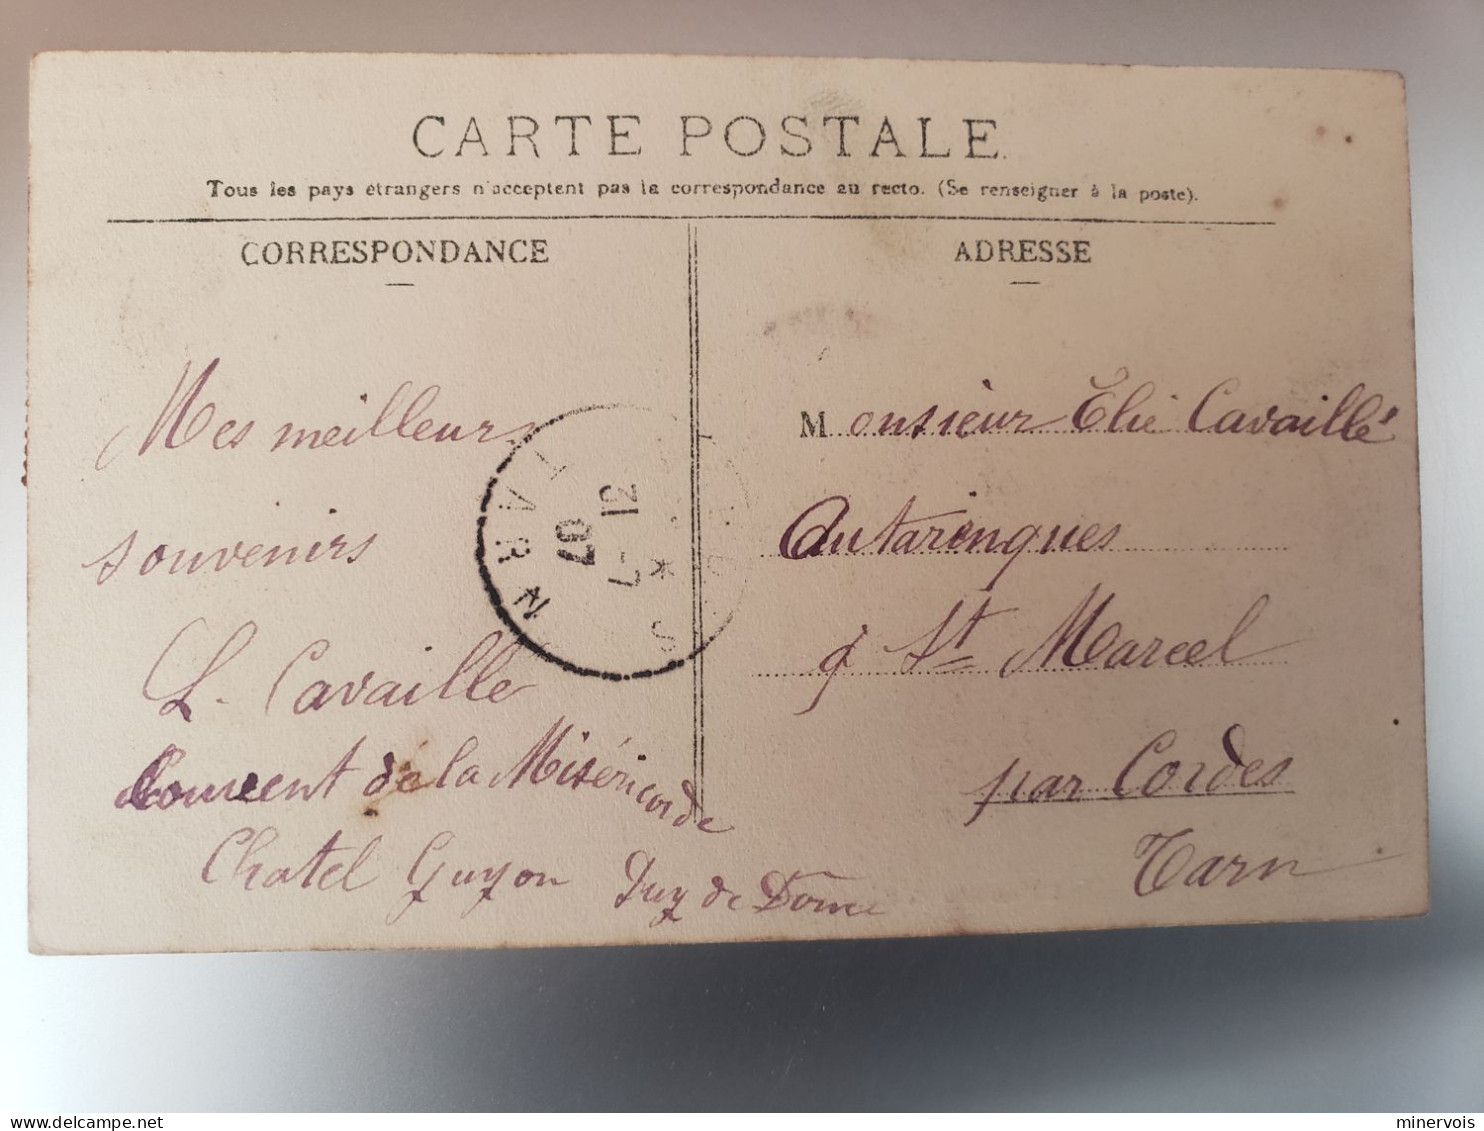 CARTE POSTALE
Tous les pays étrangers n'acceptent pas la correspondance au recto. (Se renseigner à la poste).
CORRESPONDANCE
Mes meilleurs
souvenirs
L. Cavaille
Couvent de la Miséricorde
Chatel Guyon Puy de Dome
TARN
7-12
07
ADRESSE
Monsieur Elie Cavaillé
Autarenques
à St Marcel
par Cordes
Tarn
minervois